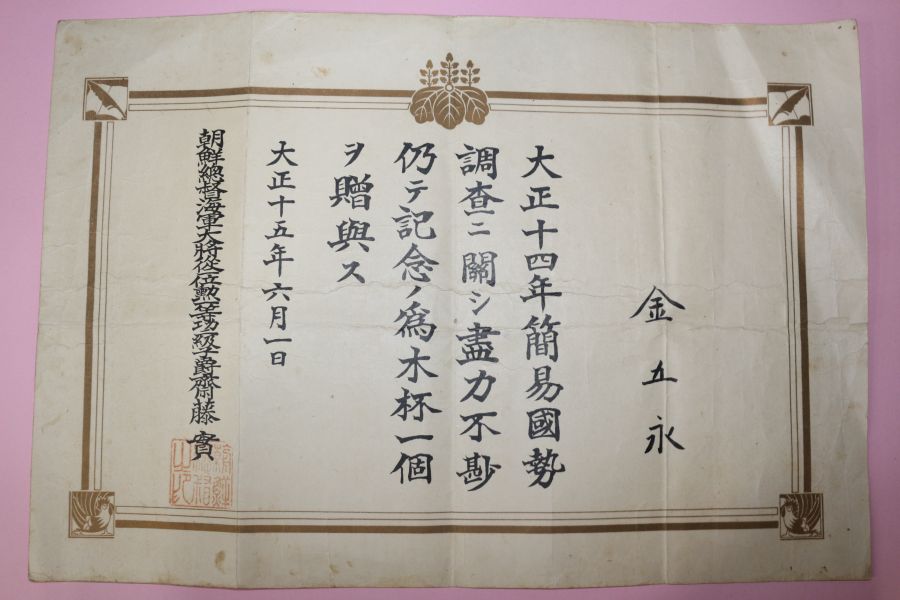 金五永
大正十四年簡易國勢
調査ニ關シ盡力不尠
仍テ記念ノ爲木杯一個
ヲ贈與ス
大正十五年六月一日
朝鮮總督海軍大將從二位勲一等功二級子爵齋藤實